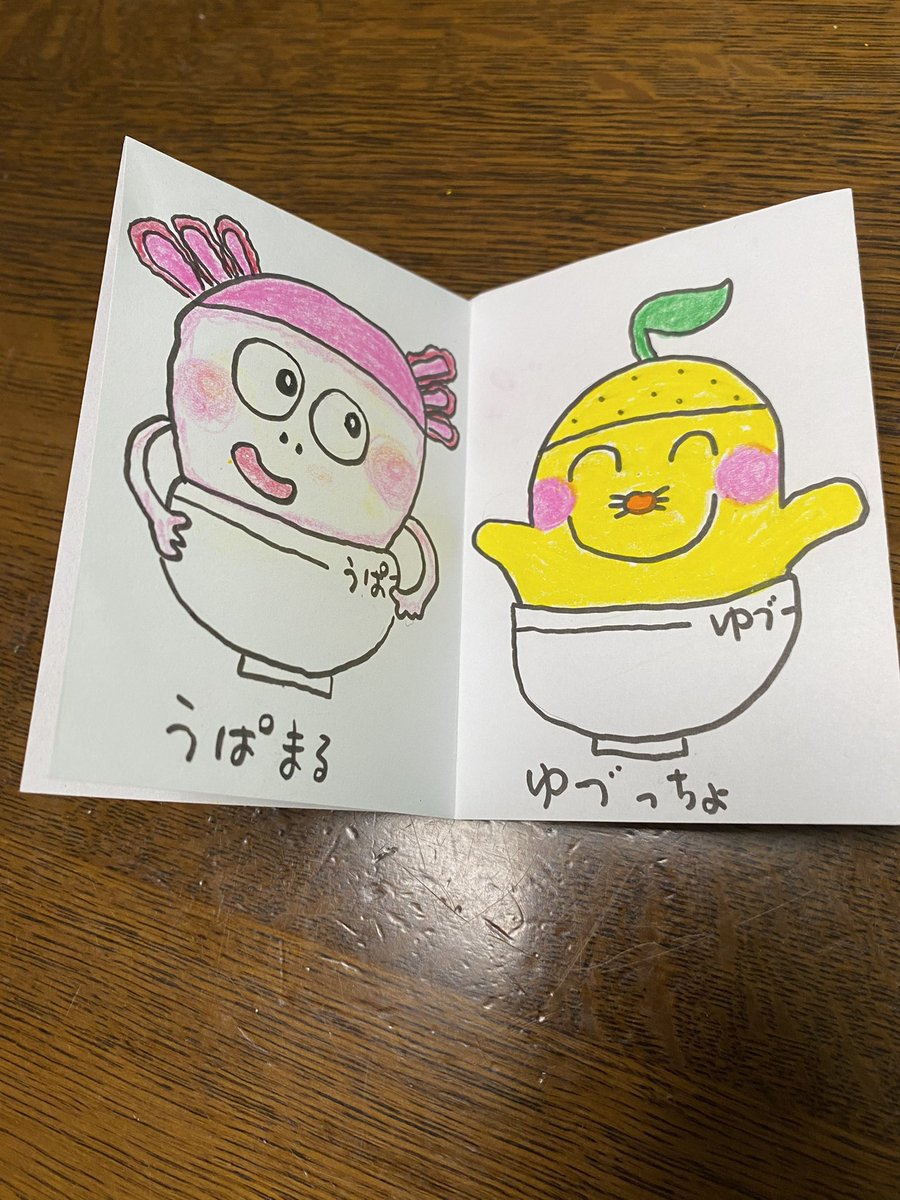 うぱー
うぱまる
ゆづー
ゆづっちょ